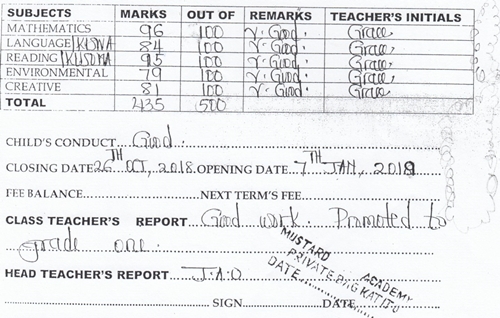 SUBJECTS MARKS OUT OF REMARKS TEACHER'S INITIALS
MATHEMATICS 96 100 V. Good Grace
LANGUAGE/KUSWA 84 100 V. Good Grace
READING/KUSOMA 95 100 V. Good Grace
ENVIRONMENTAL 79 100 V. Good Grace
CREATIVE 81 100 V. Good Grace
TOTAL 435 500
CHILD'S CONDUCT... Good.
CLOSING DATE 26TH OCT, 2018. OPENING DATE 7TH JAN, 2019
FEE BALANCE NEXT TERM'S FEE
CLASS TEACHER'S REPORT Good work. Promoted to
grade one.
HEAD TEACHER'S REPORT J.A.O
MUSTARD ACADEMY
PRIVATE BAG KATITO
DATE
SIGN DATE